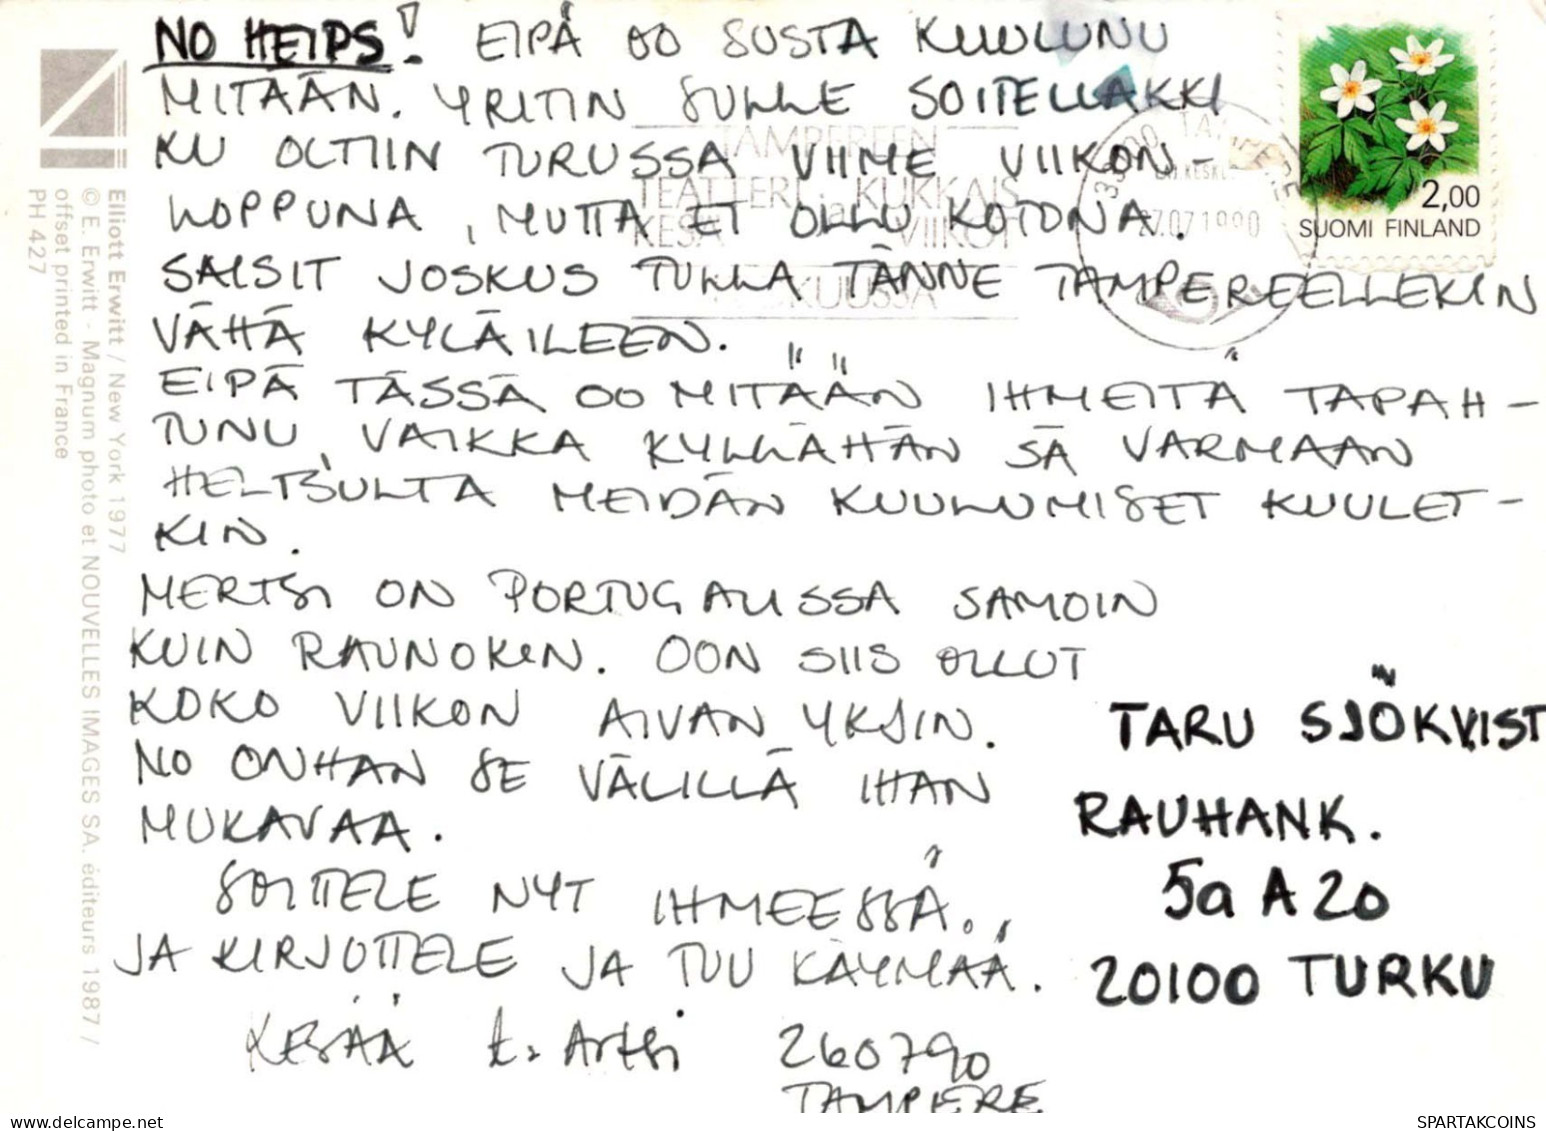 NO HEIPS! EIPÄ OO SUSTA KUULUNU
MITÄÄN. YRITIN SULLE SOITELLAKKI
KU OLTIIN TURUSSA VIIME VIIKON-
LOPPUNA, MUTTA ET OLLU KOTONA.
SAISIT JOSKUS TULLA TÄNNE TAMPEREELLEKIN
VÄHÄ KYLÄILEEN.
EIPÄ TÄSSÄ OO MITÄÄN IHMEITÄ TAPAH-
TUNU, VAIKKA KYLLÄHÄN SÄ VARMAAN
HELTSULTA MEIDÄN KUULUMISET KUULET-
KIN.
MERTSI ON PORTUGALISSA SAMOIN
KUIN RAUNOKIN. OON SIIS OLLUT
KOKO VIIKON AIVAN YKSIN.
NO ONHAN SE VÄLILLÄ IHAN
MUKAVAA.
SOITTELE NYT IHMEESSÄ.
JA KIRJOTTELE JA TUU KÄYMÄÄ.
KESÄÄ t. Artsi 260790
TAMPERE
TARU SJÖKVIST
RAUHANK.
5a A 20
20100 TURKU
2,00
SUOMI FINLAND
TAMPEREEN
TEATTERI ja KUKKAIS
KESÄ VIIKOT
KUUSSA
TAMPERE
27.07.1990
Elliott Erwitt / New York 1977
© E. Erwitt - Magnum photo et NOUVELLES IMAGES SA. éditeurs 1987 /
offset printed in France
PH 427
SPARTAKCOINS